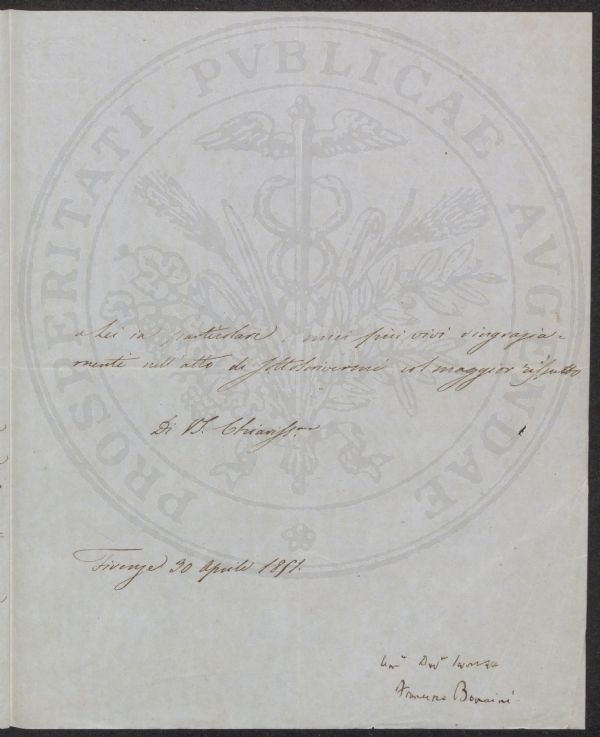 PROSPERITATI PVBLICAE AVGENDAE
a Lei in particolare i miei più vivi ringrazia=
menti nell'atto di sottoscrivermi col maggior rispetto
Di VS. Chiariss.ma
Firenze 30 Aprile 1851.
Dev.o
Francesco Bonaini